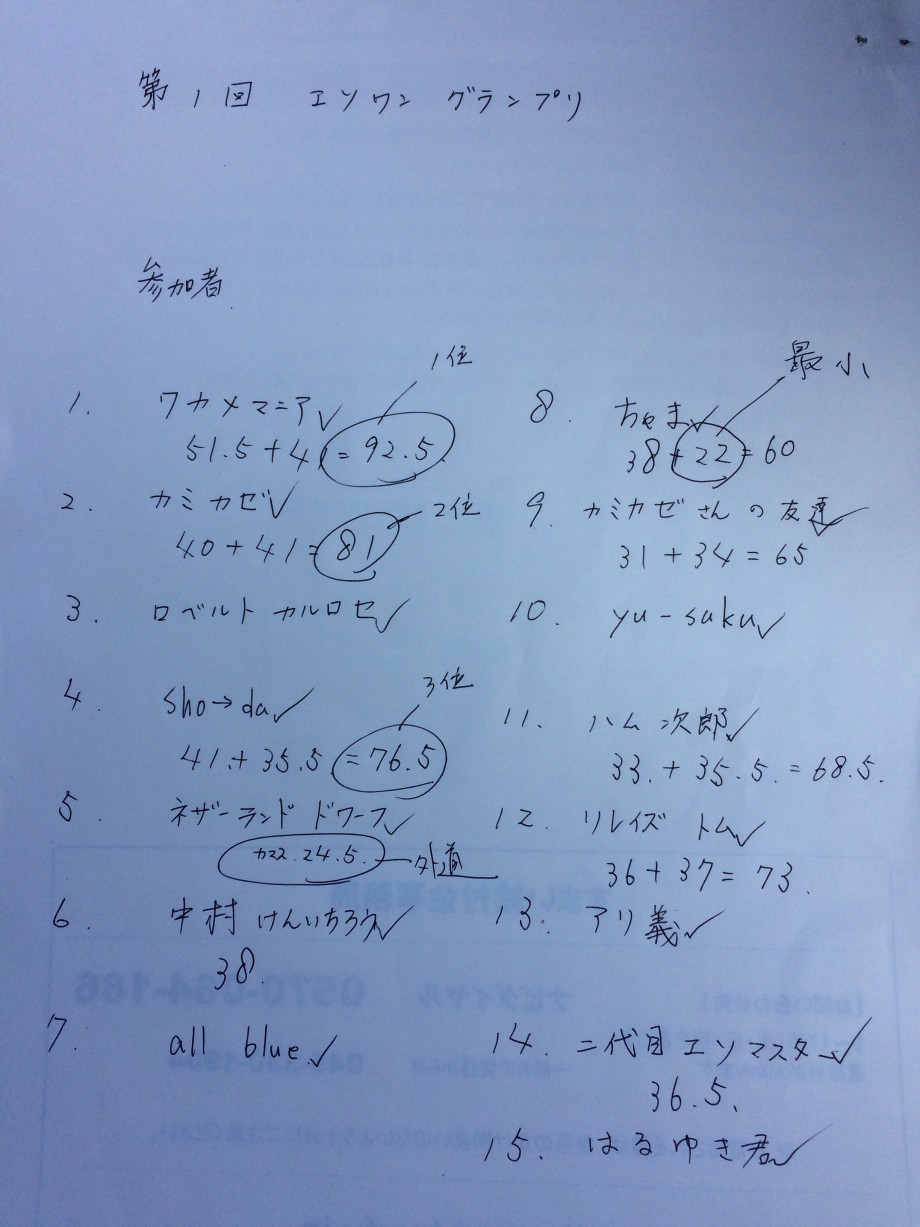 第1回 エソワン グランプリ
参加者
1位
1. ワカメマニア✓
51.5+41=92.5
2位
2. カミカゼ✓
40+41=81
3. ロベルト カルロセ✓
3位
4. sho→da✓
41.+35.5.=76.5
5. ネザーランド ドワーフ✓
カマス.24.5.外道
6. 中村けんいちろう✓
38.
7. all blue✓
最小
8. ちゃま✓
38+22=60
9. カミカゼさんの友達✓
31+34=65
10. yu-saku✓
11. ハム次郎✓
33.+35.5.=68.5.
12. リレイズ トム✓
36+37=73.
13. アリ義✓
14. 二代目エソマスター✓
36.5.
15. はるゆき君✓